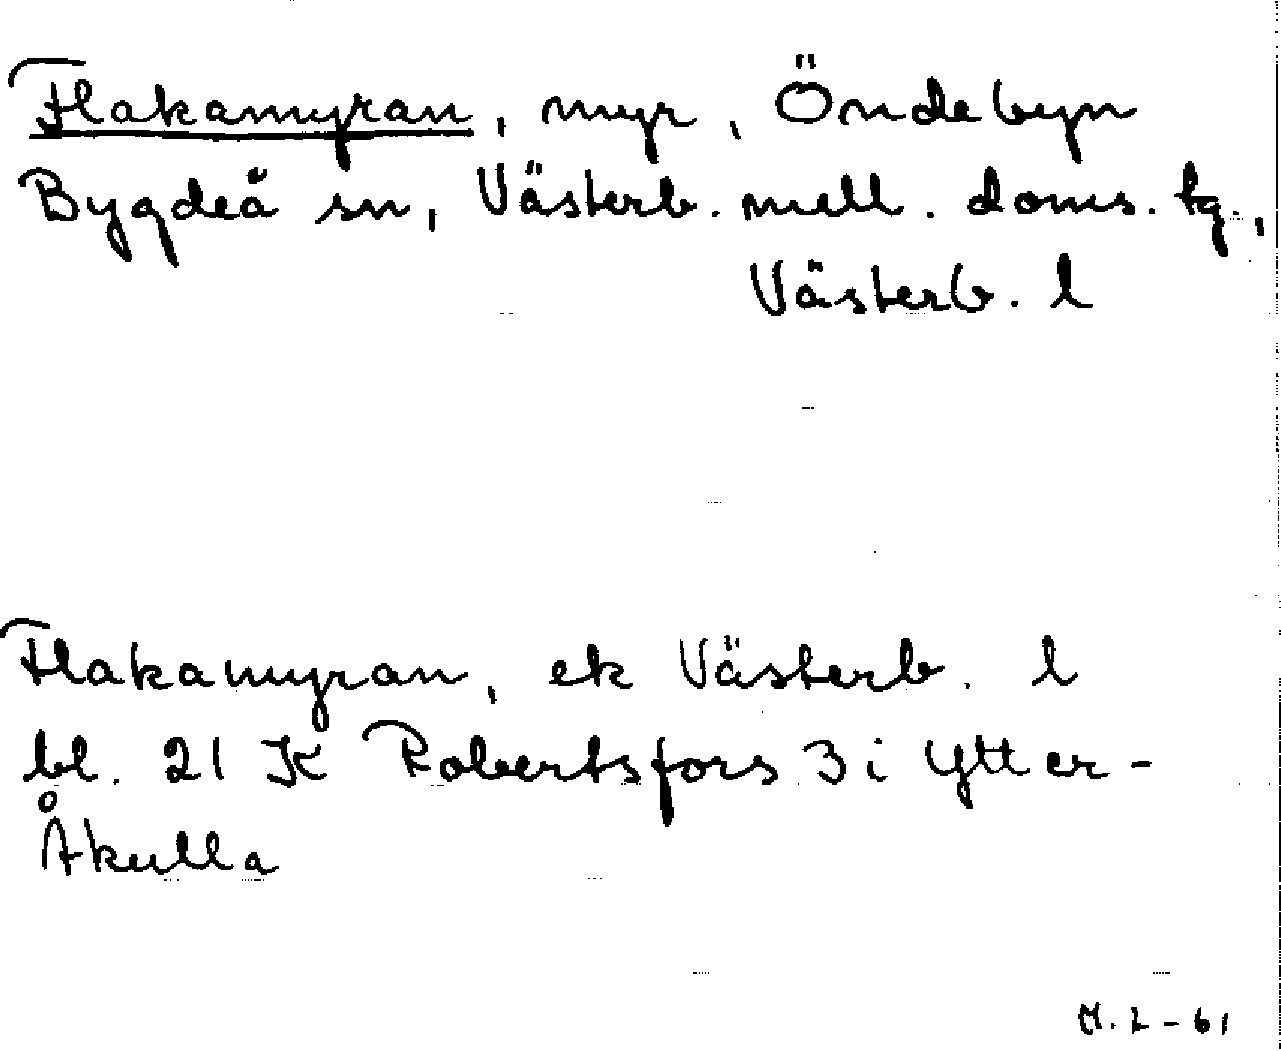 Flakamyran, myr, Öndebyn
Bygdeå sn, Västerb. mell. doms. tg.,
Västerb. l
Flakamyran, ek Västerb. l
bl. 21 K Robertsfors 3 i Ytter-
Åkulla
M. L - 61